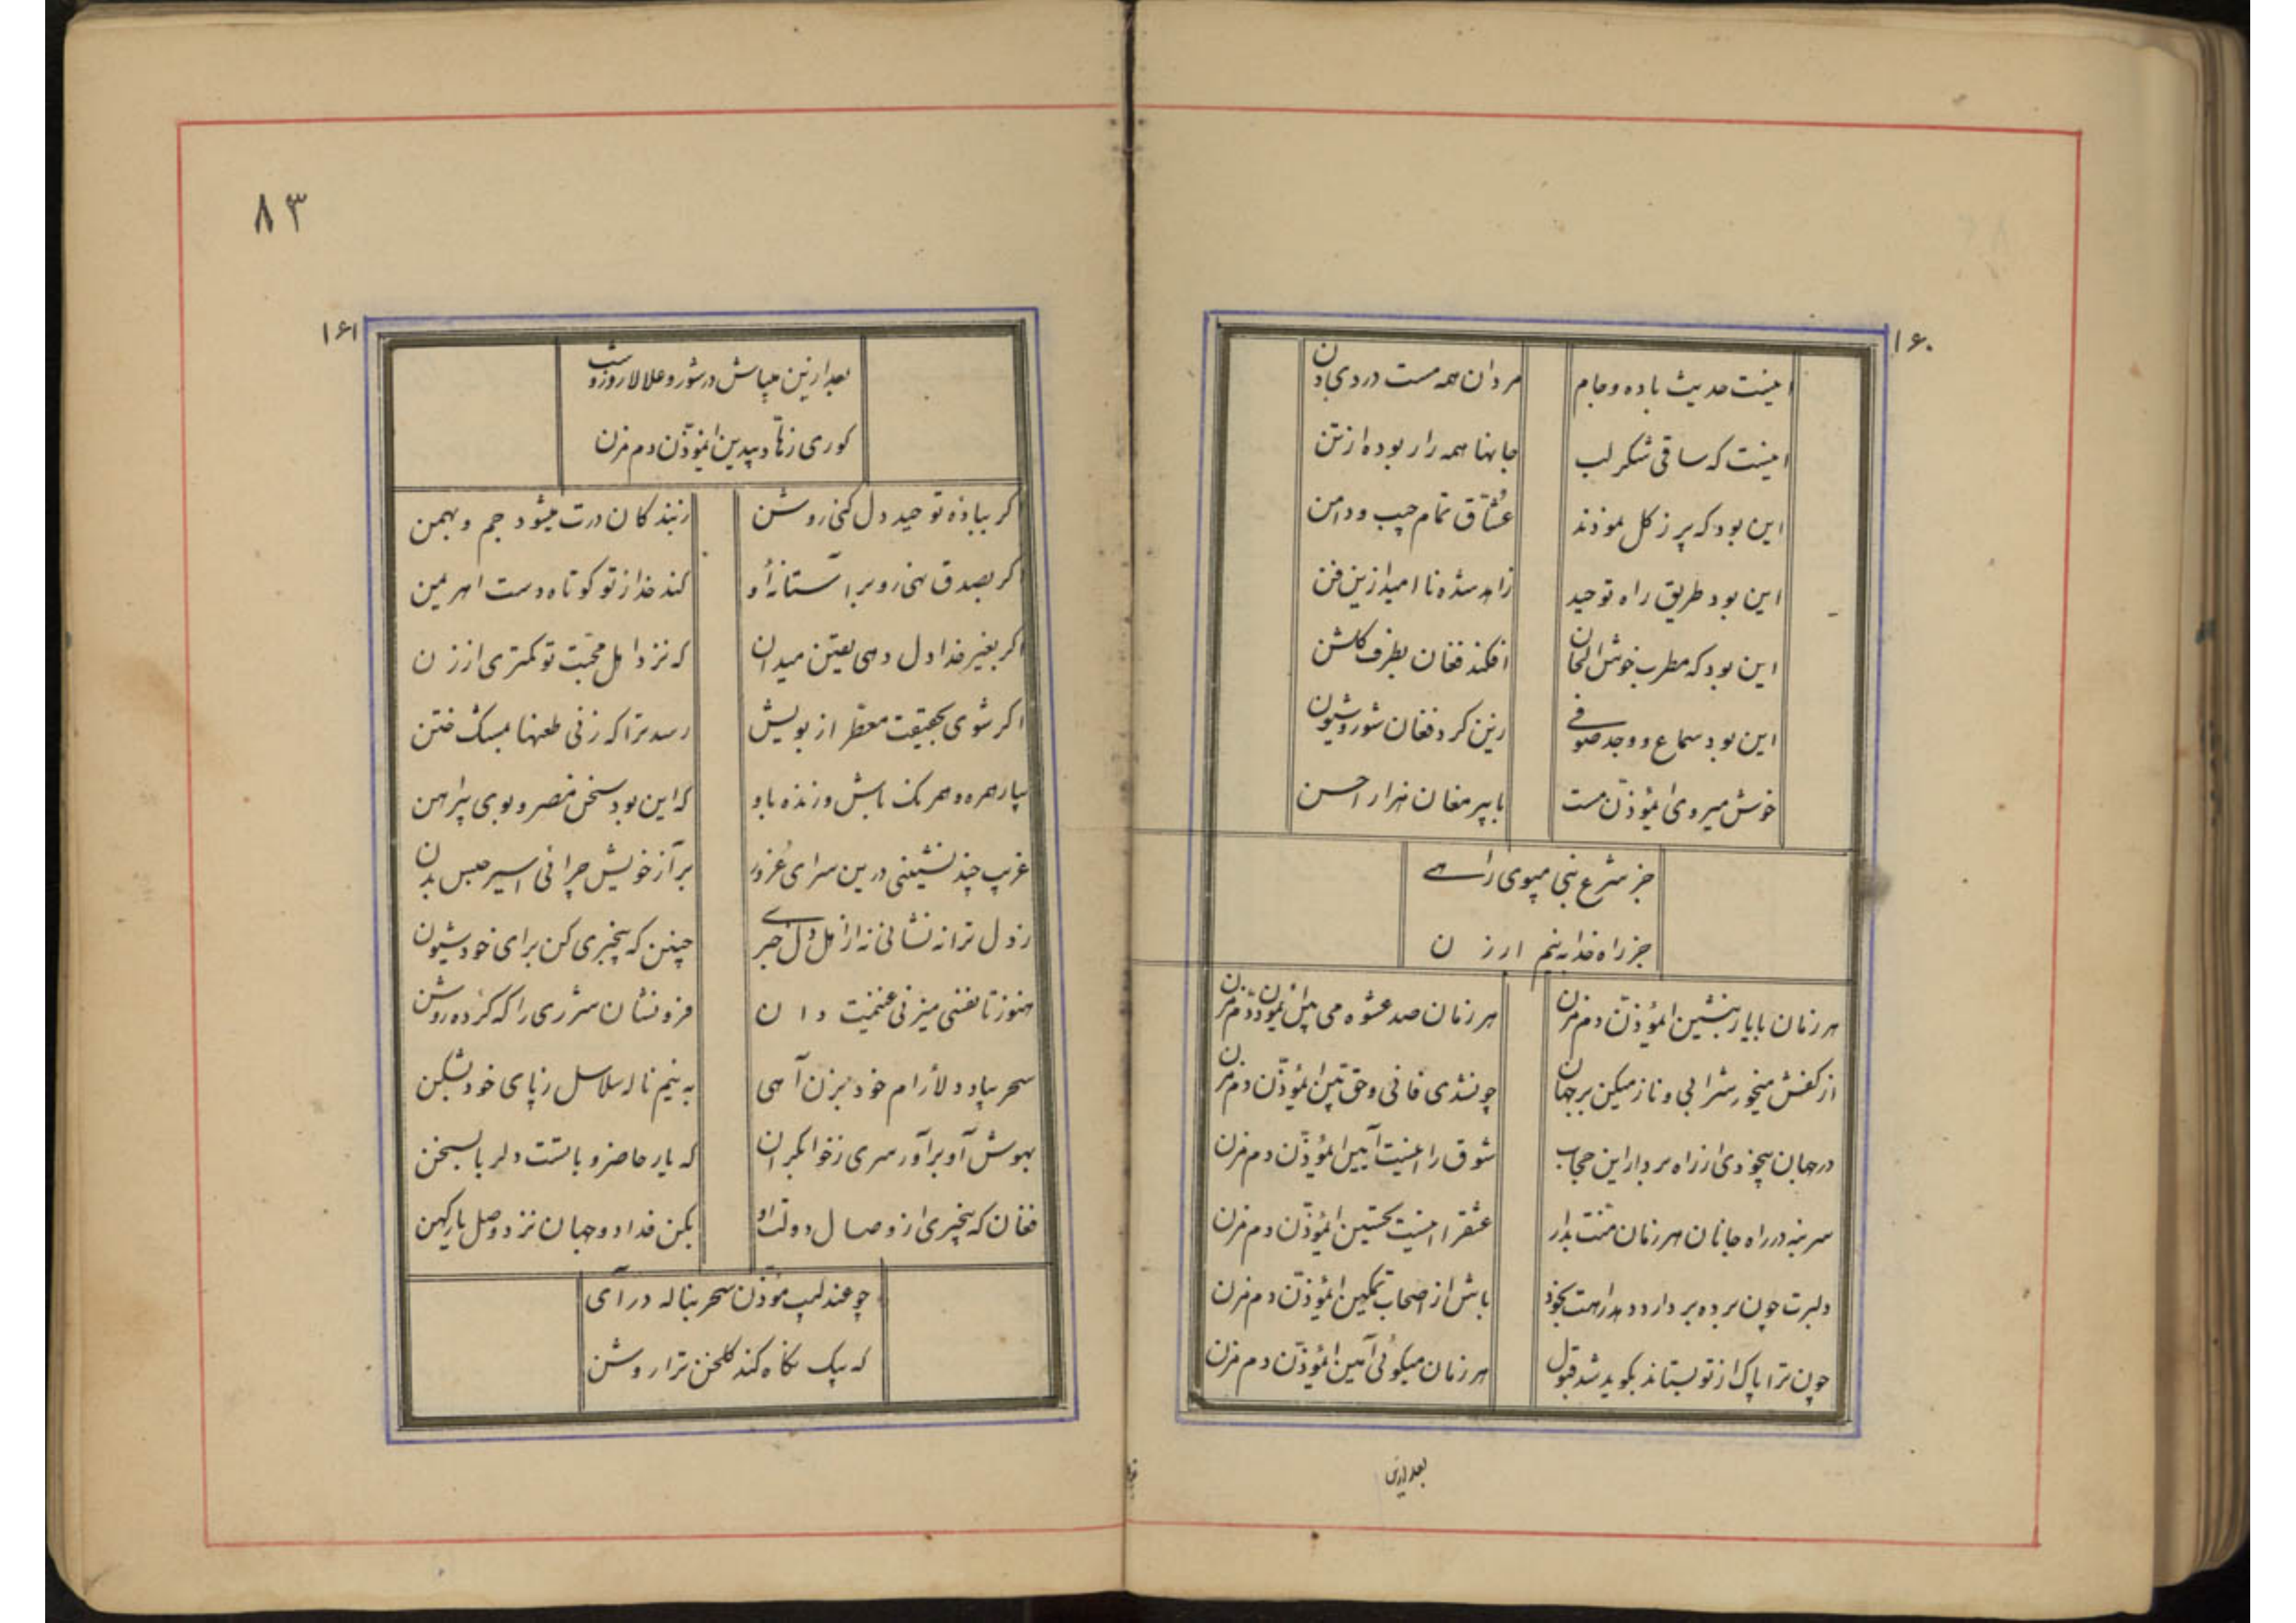 ۱۶۰
اینست حدیث باده و جام
مردان همه مست دردی دن
اینست که ساقی شکر لب
جانها همه را ربوده از تن
این بود که پر ز کل نمودند
عشّاق تمام جیب و دامن
این بود طریق راه توحید
زاهد شده نا امید ازین فن
این بود که مطرب خوش الحان
افکند فغان بطرف کلشن
این بود سماع و وجد صوفی
رنین کرد فغان شور و شیون
خوش میروی ایمؤذّن مست
با پیر مغان هزار احسن
جز شرع نبی مپوی راهی
جز راه خدا به نیم ارزن
هر زمان با یار بنشین ایمؤذّن دم مزن
هر زمان صد عشوه می بین ایمؤذّن دم مزن
از کفش میخور شرابی و ناز میکن بر جهان
چونشدی فانی و حق بین ایمؤذّن دم مزن
در جهان بیخودی از راه بردار این حجاب
شوق را اینست آیین ایمؤذّن دم مزن
سر بنه در راه جانان هر زمان منّت بدار
عشقرا اینست تحسین ایمؤذّن دم مزن
دلبرت چون برده بردارد دهد راهت بخود
باش از اصحاب تمکین ایمؤذّن دم مزن
چون ترا پاک از تو بستاند بکوید شد قبول
هر زمان میکوئی آمین ایمؤذّن دم مزن
بعد ازین
۸۳
۱۶۱
بعد ازین میباش در شور و علالا روز و شب
کوری زهّاد بیدین ایمؤذّن دم مزن
کر بباده توحید دل کنی روشن
ز بندکان درت میشود جم و بهمن
اکر بصدق نهی رو بر آستانهٔ او
کند خدا ز تو کوتاه دست اهریمن
اکر بغیر خدا دل دهی یقین میدان
که نزد اهل محبّت تو کمتری از زن
اکر شوی بحقیقت معطّر از بویش
رسد ترا که زنی طعنها بمشک ختن
بیار همره و همرنک باش و زنده باو
که این بود سخن مصر و بوی پیراهن
غریب چند نشینی درین سرای غرور
بر آ ز خویش چرائی اسیر حبس بدن
ز دل ترا نه نشانی نه از اهل دل خبری
چنین که بیخبری کن برای خود شیون
هنوز تا نفسی میزنی غنیمت دان
فرو نشان شرری را که کرده روشن
سحر بیاد دلآرام خود بزن آهی
به نیم ناله سلاسل ز پای خود بشکن
بهوش آو برآور سری ز خواب کران
که یار حاضر و با تست دلربا بسخن
فغان که بیخبری از وصال دولت او
بکن فدا دو جهان نزد وصل یار کهن
چو عندلیب مؤذّن سحر بناله در آی
که یک نکاه کند کلخن ترا روشن